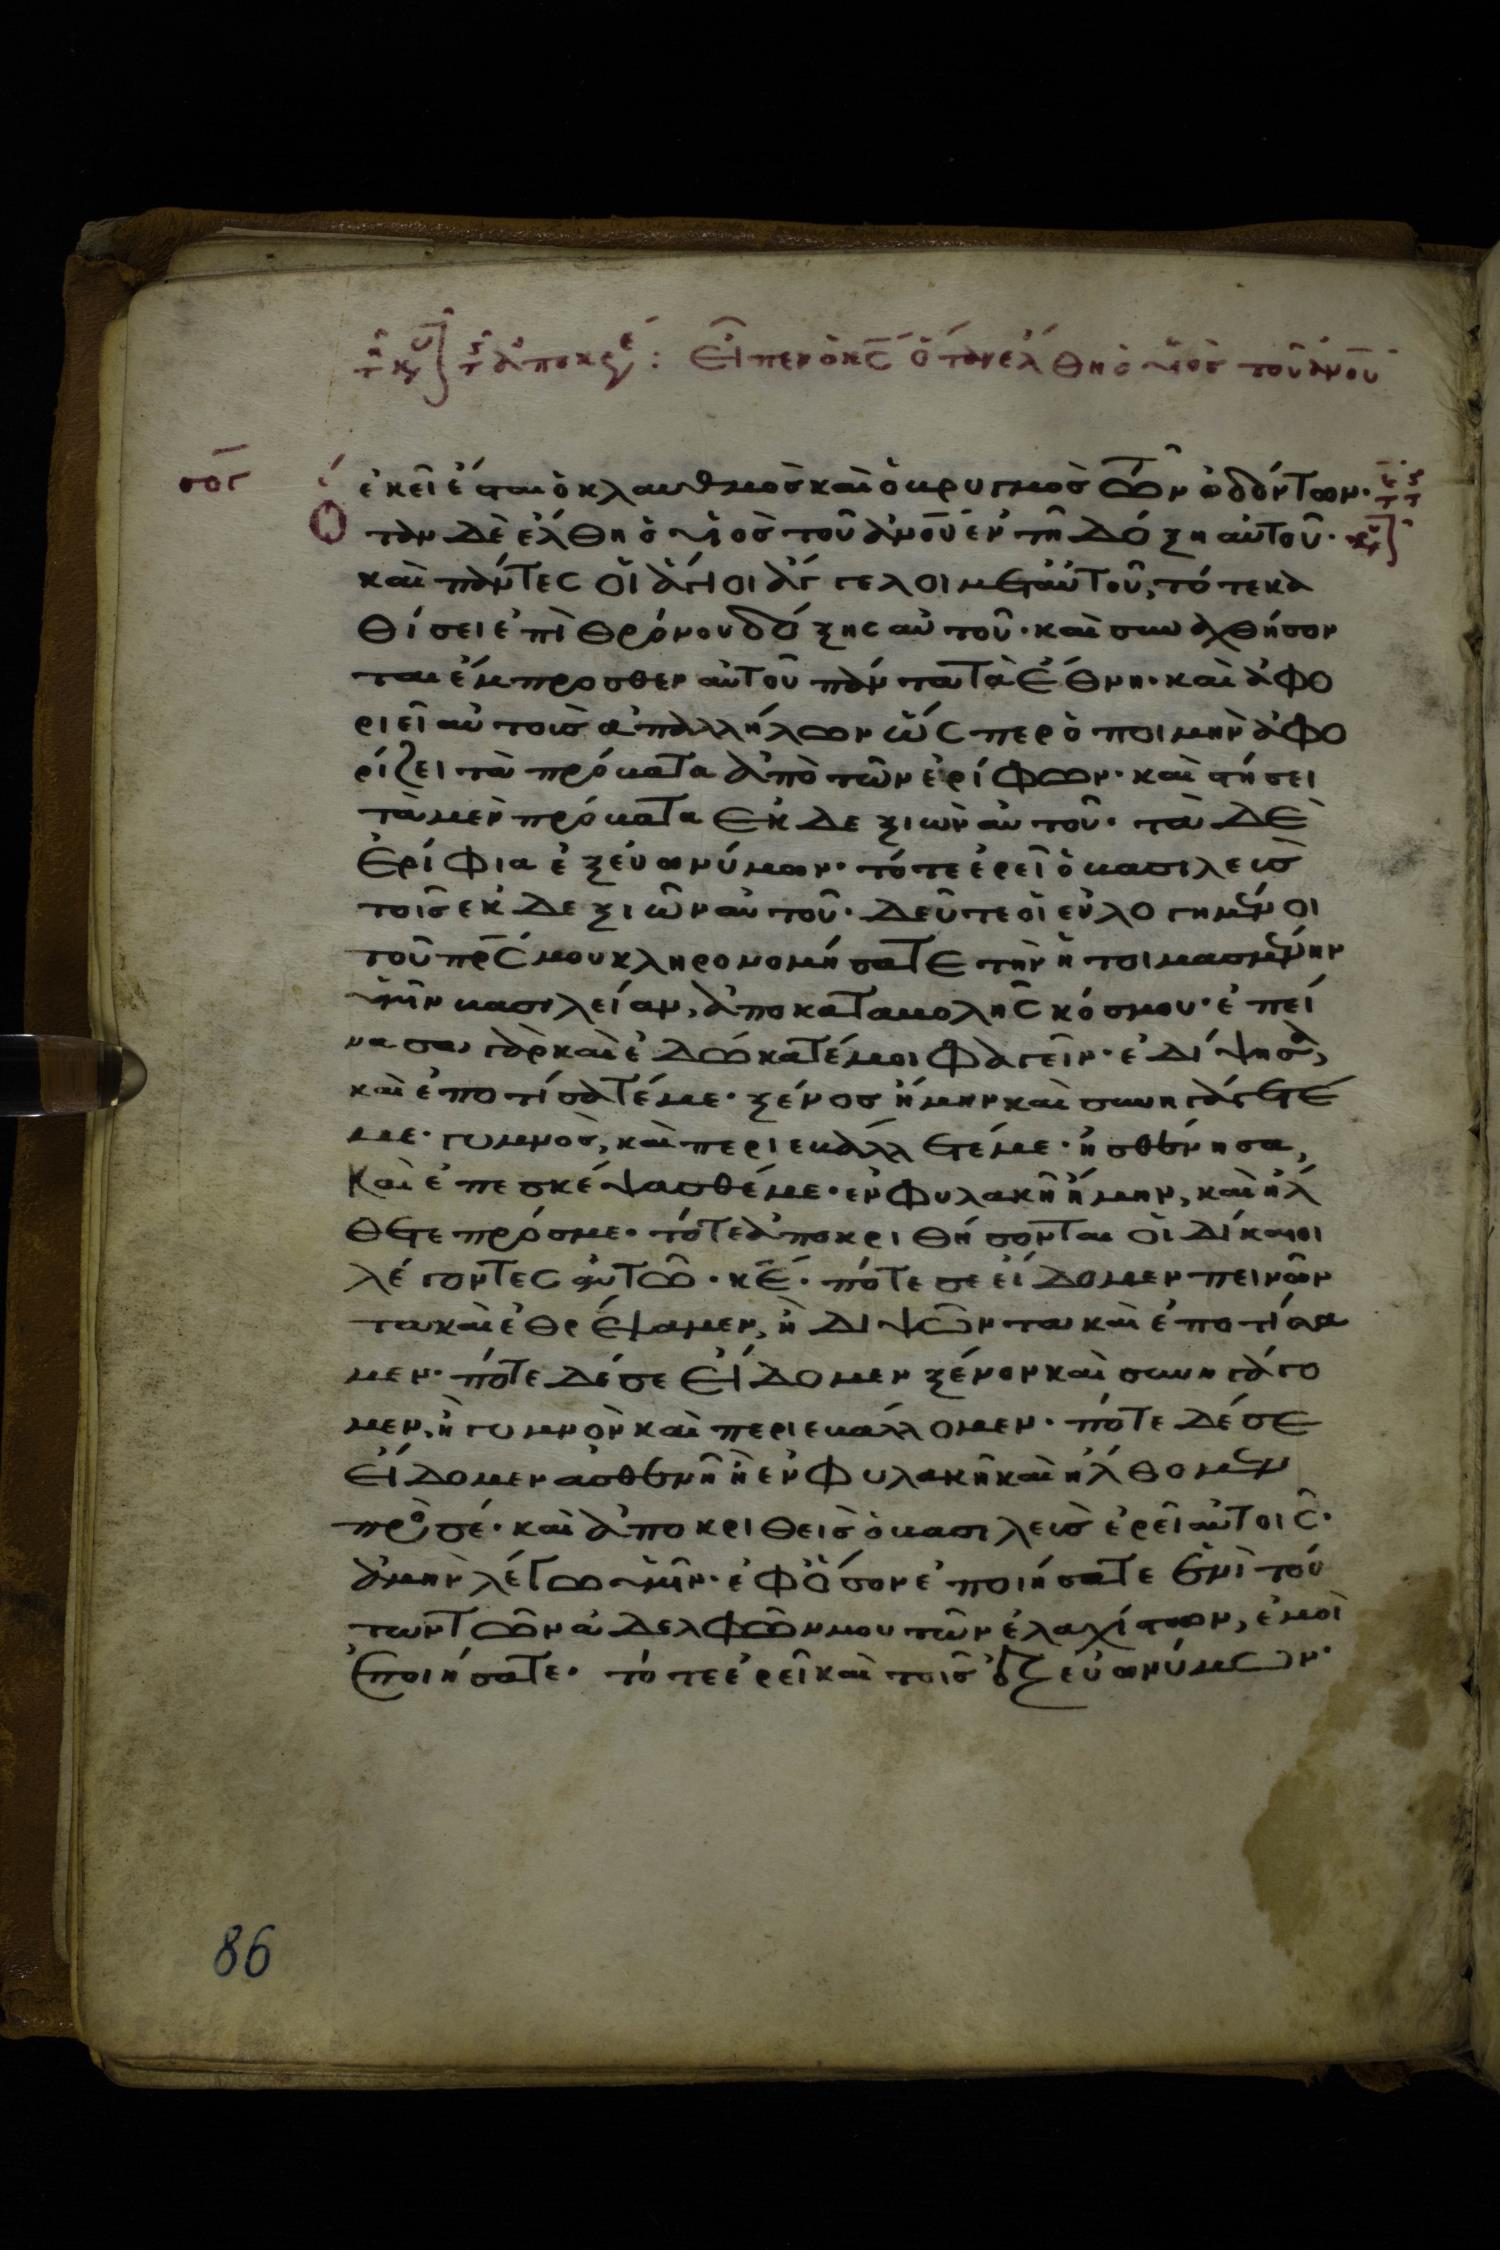 τῇ κυ ζ τ ἀποκρε: Εἶπεν ὁ κς ὅταν ἔλθη ὁ υἱὸς τοῦ ἀνου
σογ
ἐκεῖ ἔσται ὁ κλαυθμὸς καὶ ὁ βρυγμὸς τῶν ὀδόντων·
Ὅταν δὲ ἔλθη ὁ υἱὸς τοῦ ἀνου ἐν τῆ δόξη αὐτοῦ·
καὶ πάντες οἱ ἅγιοι ἄγγελοι μετ' αὐτοῦ, τότε κα
θίσει ἐπὶ θρόνου δόξης αὐτοῦ· καὶ συναχθήσον
ται ἔμπροσθεν αὐτοῦ πάντα τὰ ἔθνη· καὶ ἀφο
ριεῖ αὐτοὺς ἀπ' ἀλλήλων ὥσπερ ὁ ποιμὴν ἀφο
ρίζει τὰ πρόβατα ἀπὸ τῶν ἐρίφων· καὶ στήσει
τὰ μὲν πρόβατα ἐκ δεξιῶν αὐτοῦ· τὰ δὲ
ἐρίφια ἐξ εὐωνύμων· τότε ἐρεῖ ὁ βασιλεὺς
τοῖς ἐκ δεξιῶν αὐτοῦ· δεῦτε οἱ εὐλογημένοι
τοῦ πρς μου κληρονομήσατε τὴν ἡτοιμασμένην
ὑμῖν βασιλείαν, ἀπὸ καταβολῆς κόσμου· ἐπεί
νασα γὰρ καὶ ἐδώκατέ μοι φαγεῖν· ἐδίψησα,
καὶ ἐποτίσατέ με· ξένος ἤμην καὶ συνηγάγετέ
με· γυμνὸς, καὶ περιεβάλλετέ με· ἠσθένησα,
καὶ ἐπεσκέψασθέ με· ἐν φυλακῆ ἤμην, καὶ ἤλ
θετε πρός με· τότε ἀποκριθήσονται οἱ δίκαιοι
λέγοντες αὐτῶ· κε· πότε σε εἴδομεν πεινῶν
τα καὶ ἐθρέψαμεν, ἢ διψῶντα καὶ ἐποτίσα
μεν· πότε δέ σε εἴδομεν ξένον καὶ συνηγάγο
μεν, ἢ γυμνὸν καὶ περιεβάλλομεν· πότε δέ σε
εἴδομεν ἀσθενῆ ἢ ἐν φυλακῆ καὶ ἤλθομεν
πρὸς σέ· καὶ ἀποκριθεὶς ὁ βασιλεὺς ἐρεῖ αὐτοῖς·
ἀμὴν λέγω ὑμῖν· ἐφ' ὅσον ἐποιήσατε ἑνὶ τού
των τῶν ἀδελφῶν μου τῶν ἐλαχίστων, ἐμοὶ
ἐποιήσατε· τότε ἐρεῖ καὶ τοῖς ἐξ εὐωνύμων·
86